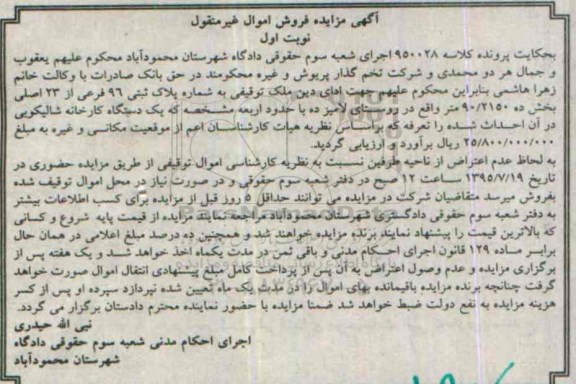 آگهی مزایده فروش اموال غیرمنقول
نوبت اول
بحکایت پرونده کلاسه ۹۵۰۰۲۸ اجرای شعبه سوم حقوقی دادگاه شهرستان محمودآباد محکوم علیهم یعقوب
و جمال هر دو محمدی و شرکت تخم گذار پریوش و غیره محکومند در حق بانک صادرات با وکالت خانم
زهرا هاشمی بنابراین محکوم علیهم جهت ادای دین ملک توقیفی به شماره پلاک ثبتی ۹۶ فرعی از ۲۳ اصلی
بخش ده ۹۰/۲۱۵۰ متر واقع در روستای لامیز ده با حدود اربعه مشخصه که یک دستگاه کارخانه شالیکوبی
در آن احداث شده را تعرفه که براساس نظریه هیات کارشناسان اعم از موقعیت مکانی و غیره به مبلغ
۲۵/۸۰۰/۰۰۰/۰۰۰ ریال برآورد و ارزیابی گردید.
به لحاظ عدم اعتراض از ناحیه طرفین نسبت به نظریه کارشناسی اموال توقیفی از طریق مزایده حضوری در
تاریخ ۱۳۹۵/۷/۱۹ ساعت ۱۲ صبح در دفتر شعبه سوم حقوقی و در صورت نیاز در محل اموال توقیف شده
بفروش میرسد متقاضیان شرکت در مزایده می توانند حداقل ۵ روز قبل از مزایده برای کسب اطلاعات بیشتر
به دفتر شعبه سوم حقوقی دادگستری شهرستان محمودآباد مراجعه نمایند مزایده از قیمت پایه شروع و کسانی
که بالاترین قیمت را پیشنهاد نمایند برنده مزایده خواهند شد و همچنین ده درصد مبلغ اعلامی در همان حال
برابر ماده ۱۲۹ قانون اجرای احکام مدنی و باقی ثمن در مدت یکماه اخذ خواهد شد و یک هفته پس از
برگزاری مزایده و عدم وصول اعتراض به آن پس از پرداخت کامل مبلغ پیشنهادی انتقال اموال صورت خواهد
گرفت چنانچه برنده مزایده باقیمانده بهای اموال را در مدت یک ماه تعیین شده نپردازد سپرده او پس از کسر
هزینه مزایده به نفع دولت ضبط خواهد شد ضمنا مزایده با حضور نماینده محترم دادستان برگزار می گردد.
نبی الله حیدری
اجرای احکام مدنی شعبه سوم حقوقی دادگاه
شهرستان محمودآباد